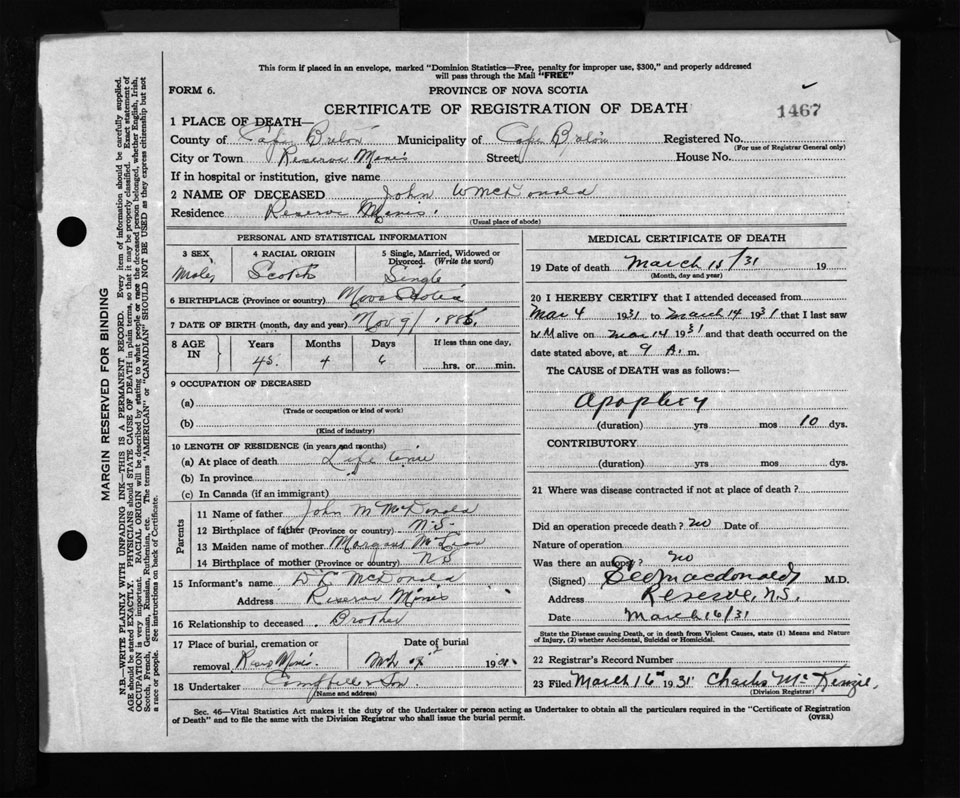 This form if placed in an envelope, marked "Dominion Statistics—Free, penalty for improper use, $300," and properly addressed
will pass through the Mail "FREE"
FORM 6.
PROVINCE OF NOVA SCOTIA
CERTIFICATE OF REGISTRATION OF DEATH
1467
1 PLACE OF DEATH—
County of Cape Breton Municipality of Cape Breton Registered No.
(For use of Registrar General only)
City or Town Reserve Mines Street House No.
If in hospital or institution, give name
2 NAME OF DECEASED John W McDonald
Residence Reserve Mines.
(Usual place of abode)
PERSONAL AND STATISTICAL INFORMATION
3 SEX 4 RACIAL ORIGIN 5 Single, Married, Widowed or
Divorced. (Write the word)
Male Scotch Single
6 BIRTHPLACE (Province or country) Nova Scotia
7 DATE OF BIRTH (month, day and year) Nov 9/ 1885
8 AGE IN Years Months Days If less than one day,
45 4 6 hrs. or min.
9 OCCUPATION OF DECEASED
(a)
(Trade or occupation or kind of work)
(b)
(Kind of industry)
10 LENGTH OF RESIDENCE (in years and months)
(a) At place of death Life time
(b) In province
(c) In Canada (if an immigrant)
Parents
11 Name of father John M McDonald
12 Birthplace of father (Province or country) N.S.
13 Maiden name of mother McLean
14 Birthplace of mother (Province or country) N S
15 Informant's name McDonald
Address Reserve Mines
16 Relationship to deceased Brother
17 Place of burial, cremation or Date of burial
removal Res Mines 19
18 Undertaker Campbell & Son
(Name and address)
MEDICAL CERTIFICATE OF DEATH
19 Date of death March 15/31 19
(Month, day and year)
20 I HEREBY CERTIFY that I attended deceased from
Mar 4 1931 to March 14 1931 that I last saw
h M alive on Mar 14 1931 and that death occurred on the
date stated above, at 9 A. m.
The CAUSE of DEATH was as follows:—
Apoplexy
(duration) yrs mos 10 dys.
CONTRIBUTORY
(duration) yrs mos dys.
21 Where was disease contracted if not at place of death?
Did an operation precede death? no Date of
Nature of operation
Was there an autopsy? no
(Signed) Macdonald M.D.
Address Reserve, N.S.
Date March 16/31
State the Disease causing Death, or in death from Violent Causes, state (1) Means and Nature
of Injury, (2) whether Accidental, Suicidal or Homicidal.
22 Registrar's Record Number
23 Filed March 16th 1931 Charles McKenzie,
(Division Registrar)
Sec. 46—Vital Statistics Act makes it the duty of the Undertaker or person acting as Undertaker to obtain all the particulars required in the "Certificate of Registration
of Death" and to file the same with the Division Registrar who shall issue the burial permit.
(OVER)
MARGIN RESERVED FOR BINDING
N.B.—WRITE PLAINLY WITH UNFADING INK—THIS IS A PERMANENT RECORD. Every item of information should be carefully supplied.
AGE should be stated EXACTLY. PHYSICIANS should STATE CAUSE OF DEATH in plain terms, so that it may be properly classified. Exact statement of
OCCUPATION is very important. RACIAL ORIGIN will be described by stating to what people or race the deceased person belonged, whether English, Irish,
Scotch, French, German, Russian, Ruthenian, etc. The terms "AMERICAN" or "CANADIAN" SHOULD NOT BE USED as they express citizenship but not
a race or people. See instructions on back of Certificate.